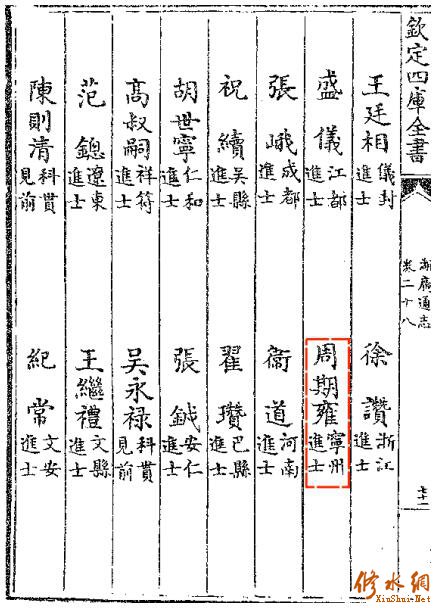 欽定四庫全書
湖廣通志
卷二十八
王廷相 儀封進士 徐讚 浙江進士
盛儀 江都進士 周期雍 寧州進士
張峨 成都進士 衞道 河南進士
祝續 吳縣進士 翟瓚 巴縣進士
胡世寧 仁和進士 張鉞 安仁進士
高叔嗣 祥符進士 吳永禄 科貫見前
范鏓 遼東進士 王繼禮 文縣進士
陳則清 科貫見前 紀常 文安進士
修水網
XiuShui.Net